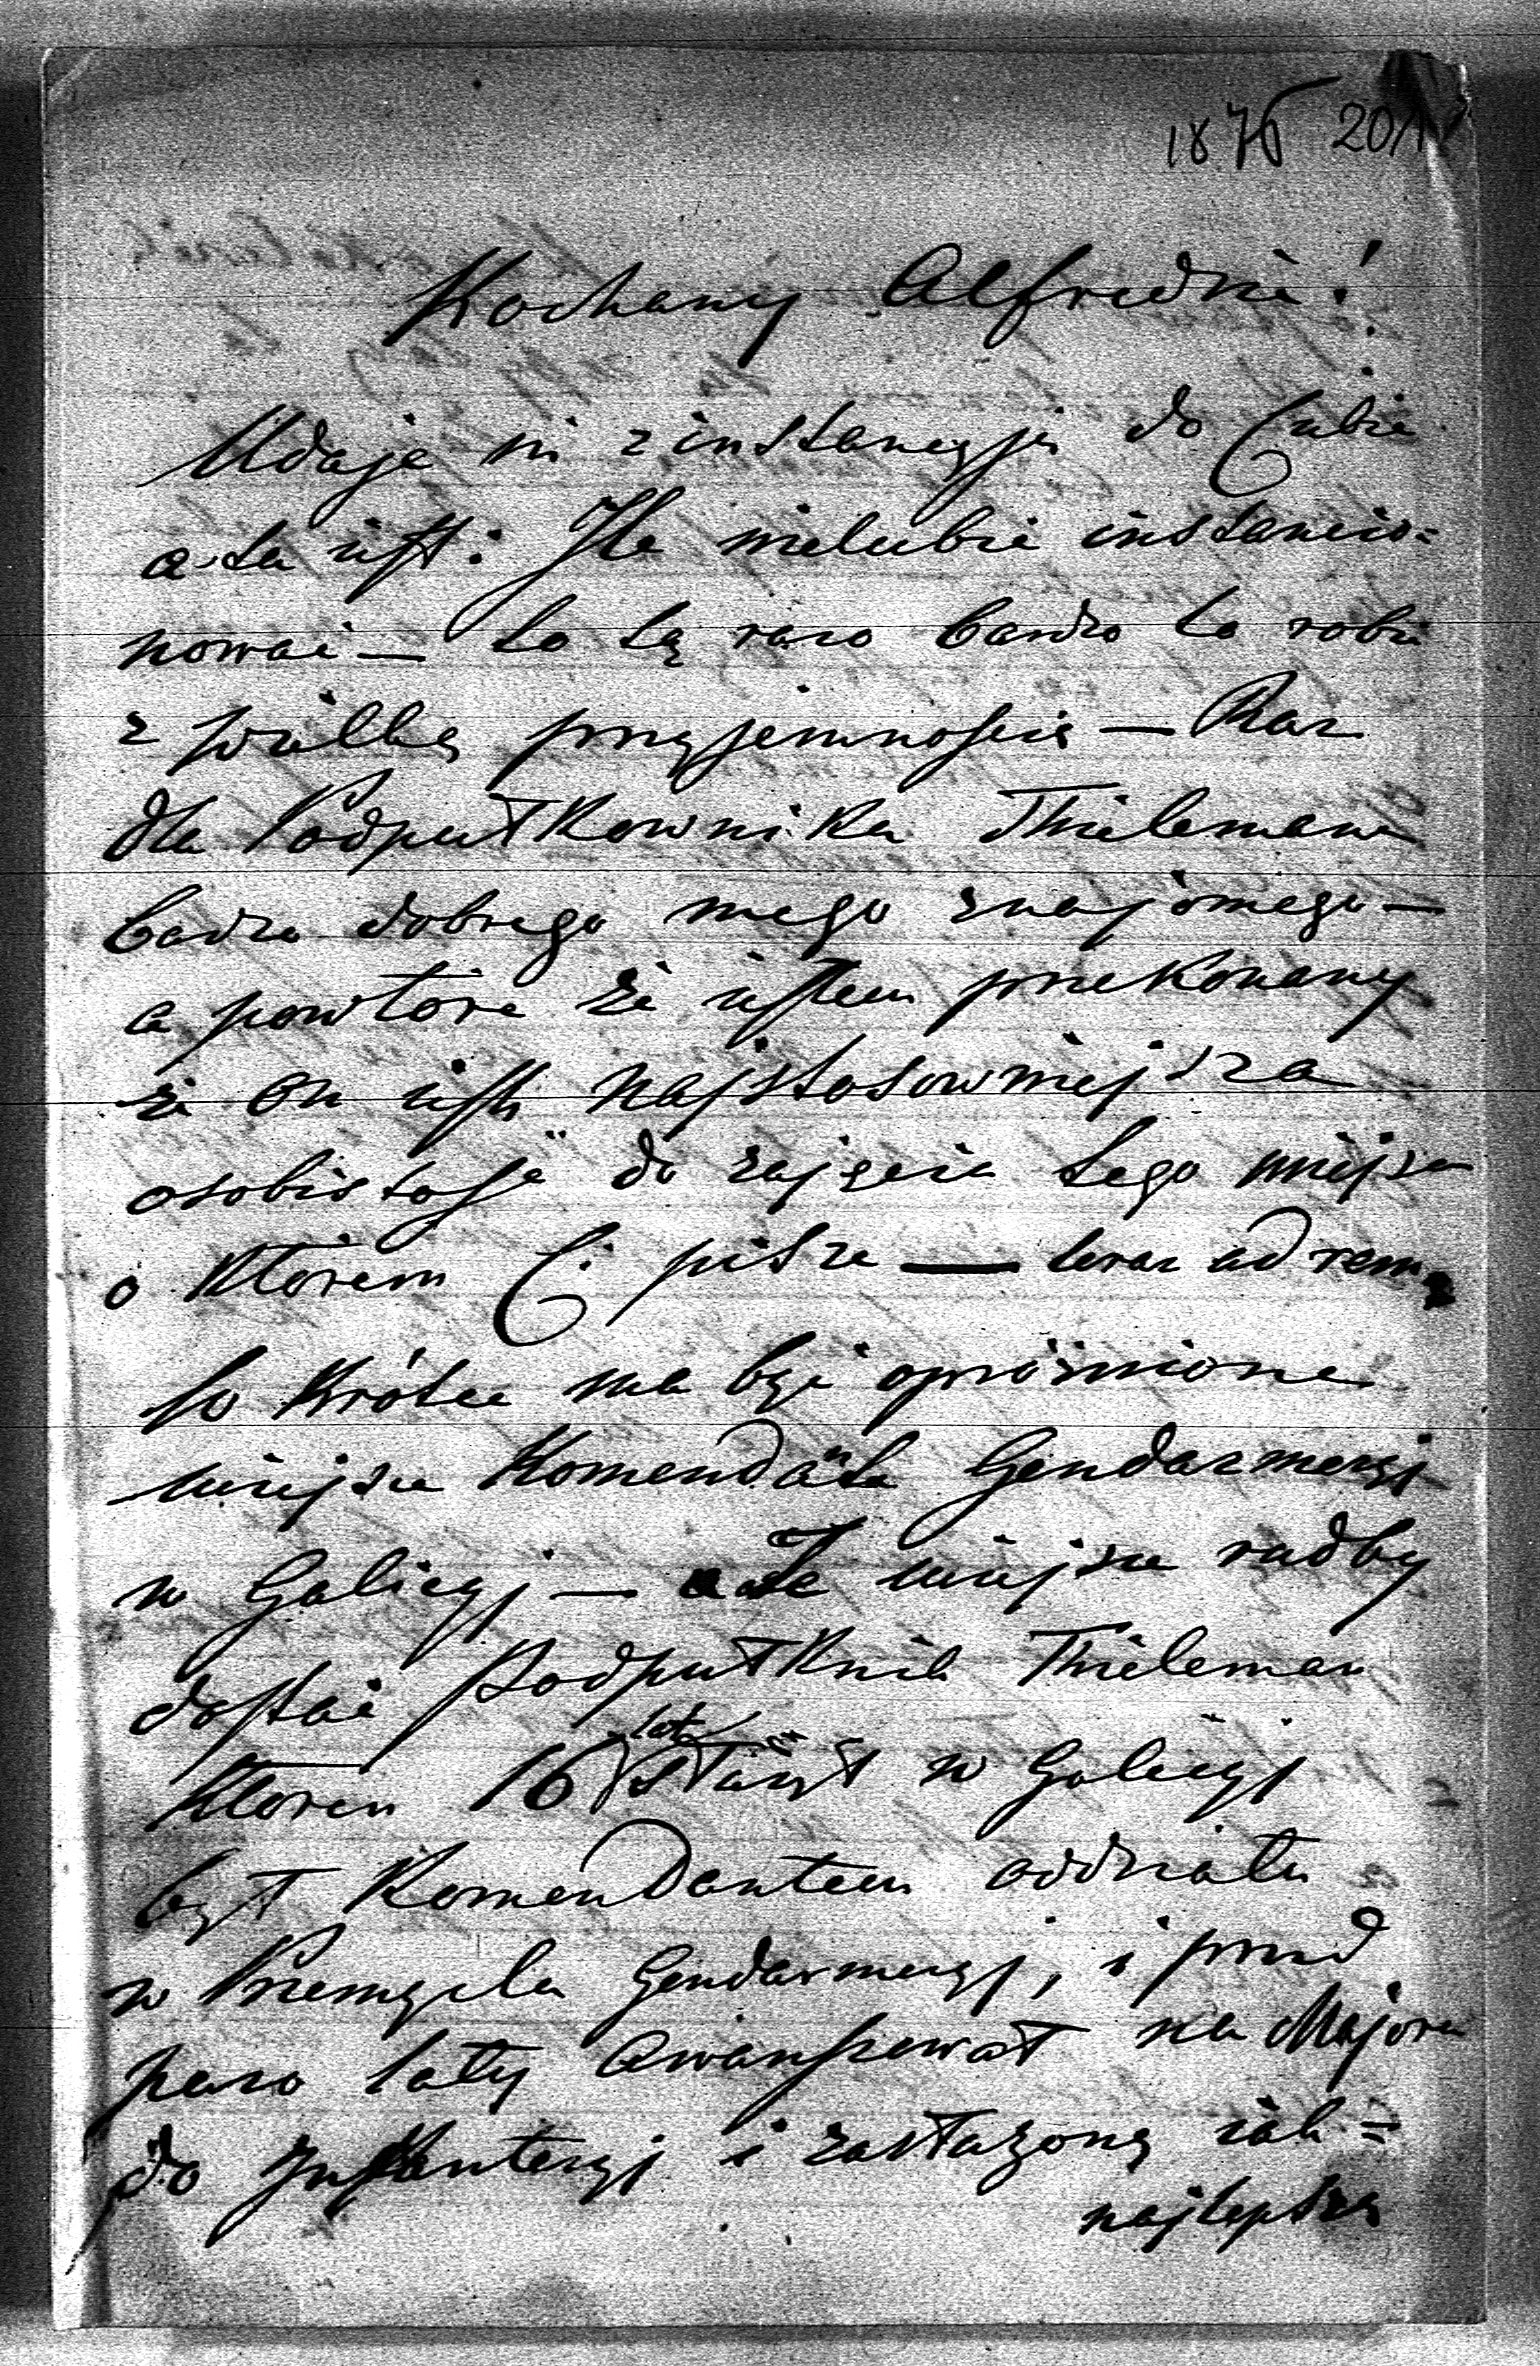 1876 20/1
Kochany Alfredzie!
Udaje się z instancyją do Ciebie
a ta jest: Ile nielubię instancio=
nować — to tą razo bardzo to robię
z wielką przyjemnością — Raz
dla Podpułkownika Thielemana
bardzo dobrego mego znajomego —
a powtóre że jestem przekonany
że on jest najstosowniejsza
osobistość do zajęcia tego miejsca
o którem Ci piszę — teraz ad rem
W krótce ma być opróżnione
miejsce Komendanta Gendarmeryj
w Galicyj — a te miejsce radby
dostać Podpułknik Thieleman
który 16 lat służył w Galicyj
był Komendantem oddziału
w Przemyślu Gendarmeryj, i przed
paro laty awansował na Majora
do Infanteryj i zasłużony jak=
najlepszą